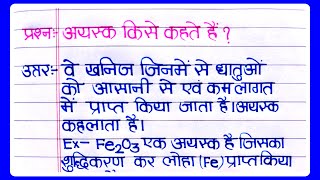 प्रश्न:- अयस्क किसे कहते हैं ?
उत्तर:- वे खनिज जिनमें से धातुओं
को आसानी से एवं कम लागत
में प्राप्त किया जाता है। अयस्क
कहलाता है।
Ex- Fe₂O₃ एक अयस्क है जिसका
शुद्धिकरण कर लोहा (Fe) प्राप्त किया